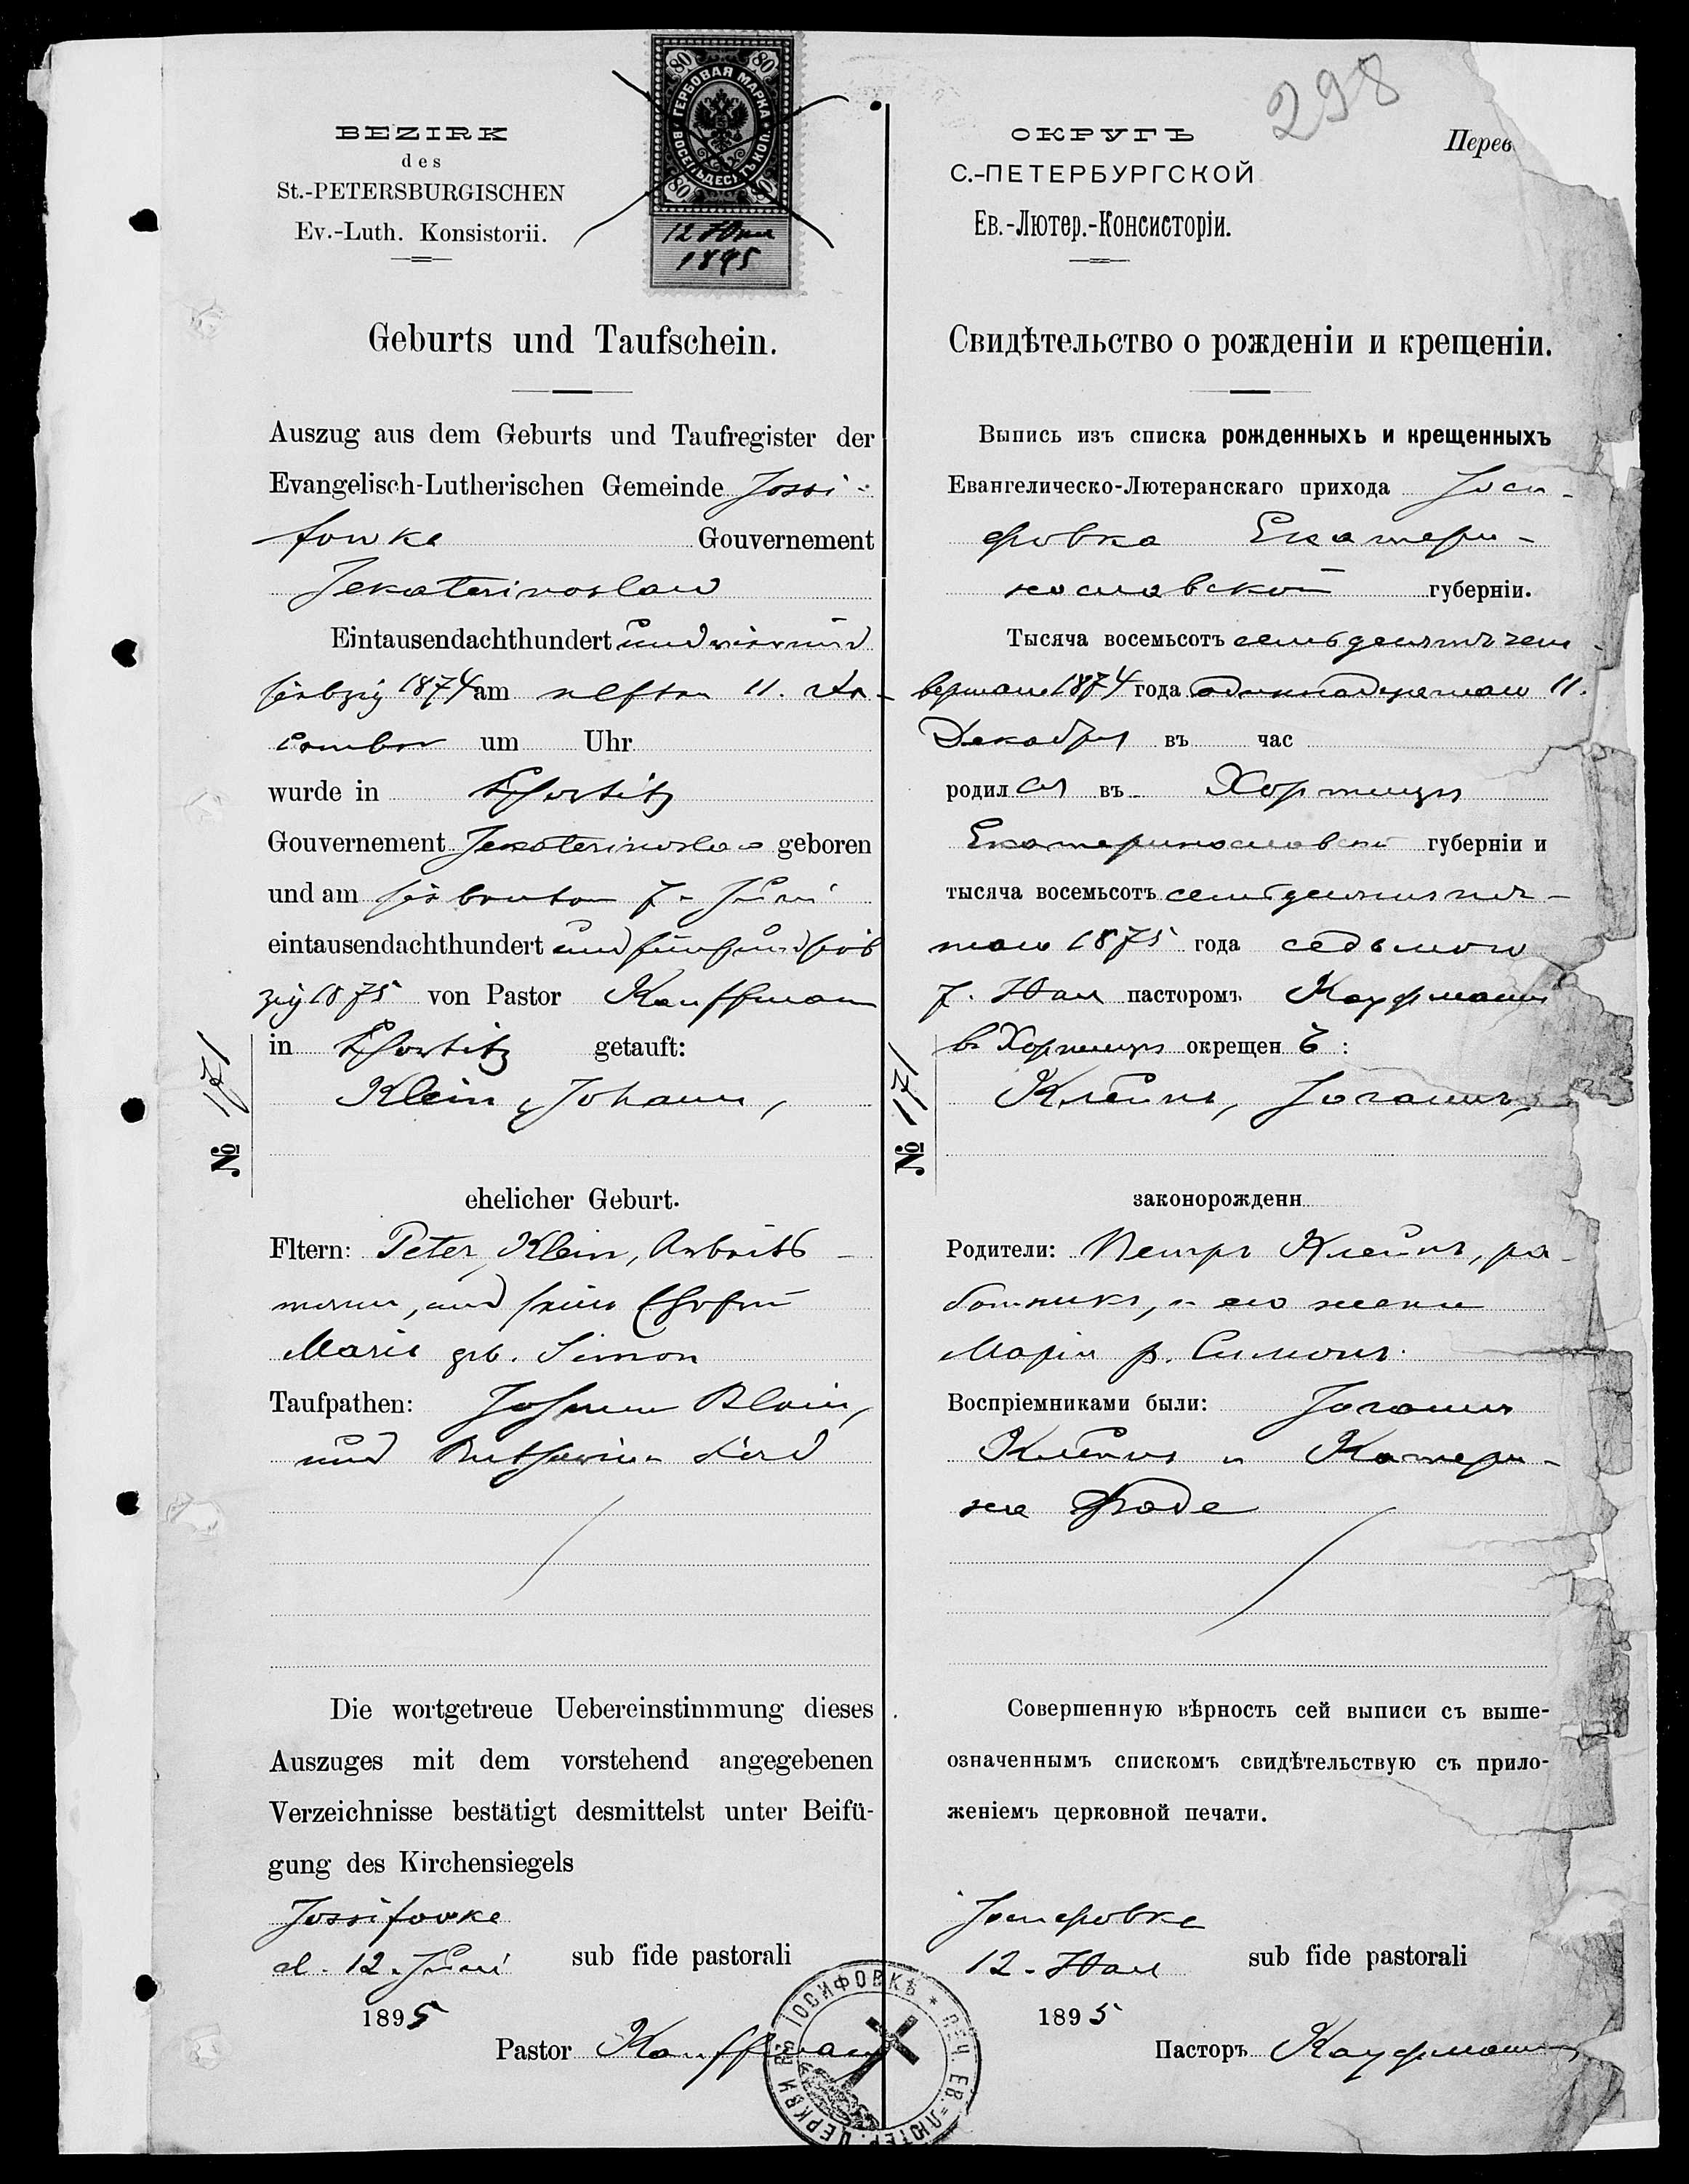 298
80 80
ГЕРБОВАЯ МАРКА
ВОСЕМЬДЕСЯТЪ КОП.
80 80
12 Юня
1895
BEZIRK
des
St.-PETERSBURGISCHEN
Ev.-Luth. Konsistorii.
Geburts und Taufschein.
Auszug aus dem Geburts und Taufregister der
Evangelisch-Lutherischen Gemeinde Jossi-
fowka Gouvernement
Jekaterinoslaw
Eintausendachthundert und vier und
siebzig 1874 am elften 11. De-
cember um Uhr
wurde in Chortitz
Gouvernement Jekaterinoslaw geboren
und am siebenten 7. Juni
eintausendachthundert und fünf und sieb
zig 1875 von Pastor Kauffmann
in Chortitz getauft:
№ 171
Klein, Johann,
ehelicher Geburt.
Eltern: Peter Klein, Arbeits-
mann, und seine Ehefrau
Marie geb. Simon
Taufpathen: Johann Klein,
und Katharina
Die wortgetreue Uebereinstimmung dieses
Auszuges mit dem vorstehend angegebenen
Verzeichnisse bestätigt desmittelst unter Beifü-
gung des Kirchensiegels
Jossifowka
d. 12. Juni sub fide pastorali
1895
Pastor Kauffmann
ОКРУГЪ Перев
С.-ПЕТЕРБУРГСКОЙ
Ев.-Лютер.-Консисторіи.
Свидѣтельство о рожденіи и крещеніи.
Выпись изъ списка рожденныхъ и крещенныхъ
Евангелическо-Лютеранскаго прихода Іоси-
фовка Екатери-
нославской губерніи.
Тысяча восемьсотъ семьдесятъ чет-
вертаго 1874 года одиннадцатаго 11.
Декабря въ час
родился въ Хортицѣ
Екатеринославской губерніи и
тысяча восемьсотъ семьдесятъ пя-
таго 1875 года седьмого
7. Юня пасторомъ Кауфманъ
въ Хортицѣ окрещенъ:
№ 171
Клейнъ, Іоганнъ,
законорожденн
Родители: Петръ Клейнъ, ра-
ботникъ, и его жена
Марія р. Симонъ.
Воспріемниками были: Іоганнъ
Клейнъ и Катери-
на
Совершенную вѣрность сей выписи съ выше-
означеннымъ спискомъ свидѣтельствую съ прило-
женіемъ церковной печати.
Іосифовка
12. Юня sub fide pastorali
1895
Пасторъ Кауфманъ
ПЕЧ. ЕВ.-ЛЮТЕР. ЦЕРКВИ ВЪ ІОСИФОВКѢ *